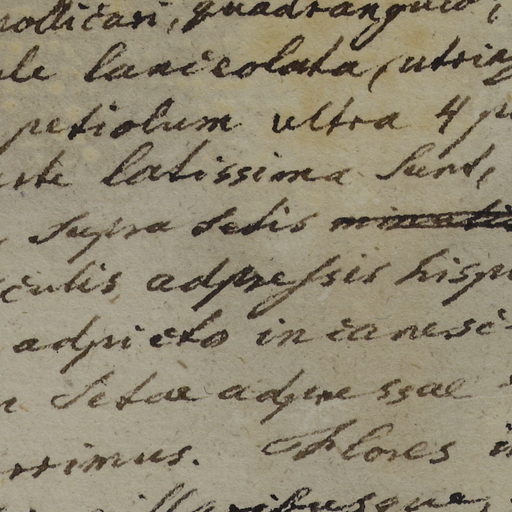 pollicari, quadrangulo,
le lanceolata, utring
petiolum ultra 4 p
rte latissima sunt,
, supra setis
culis adpressis hisp
adpicto incanesc
n setae adpressae
rrimus. Flores i